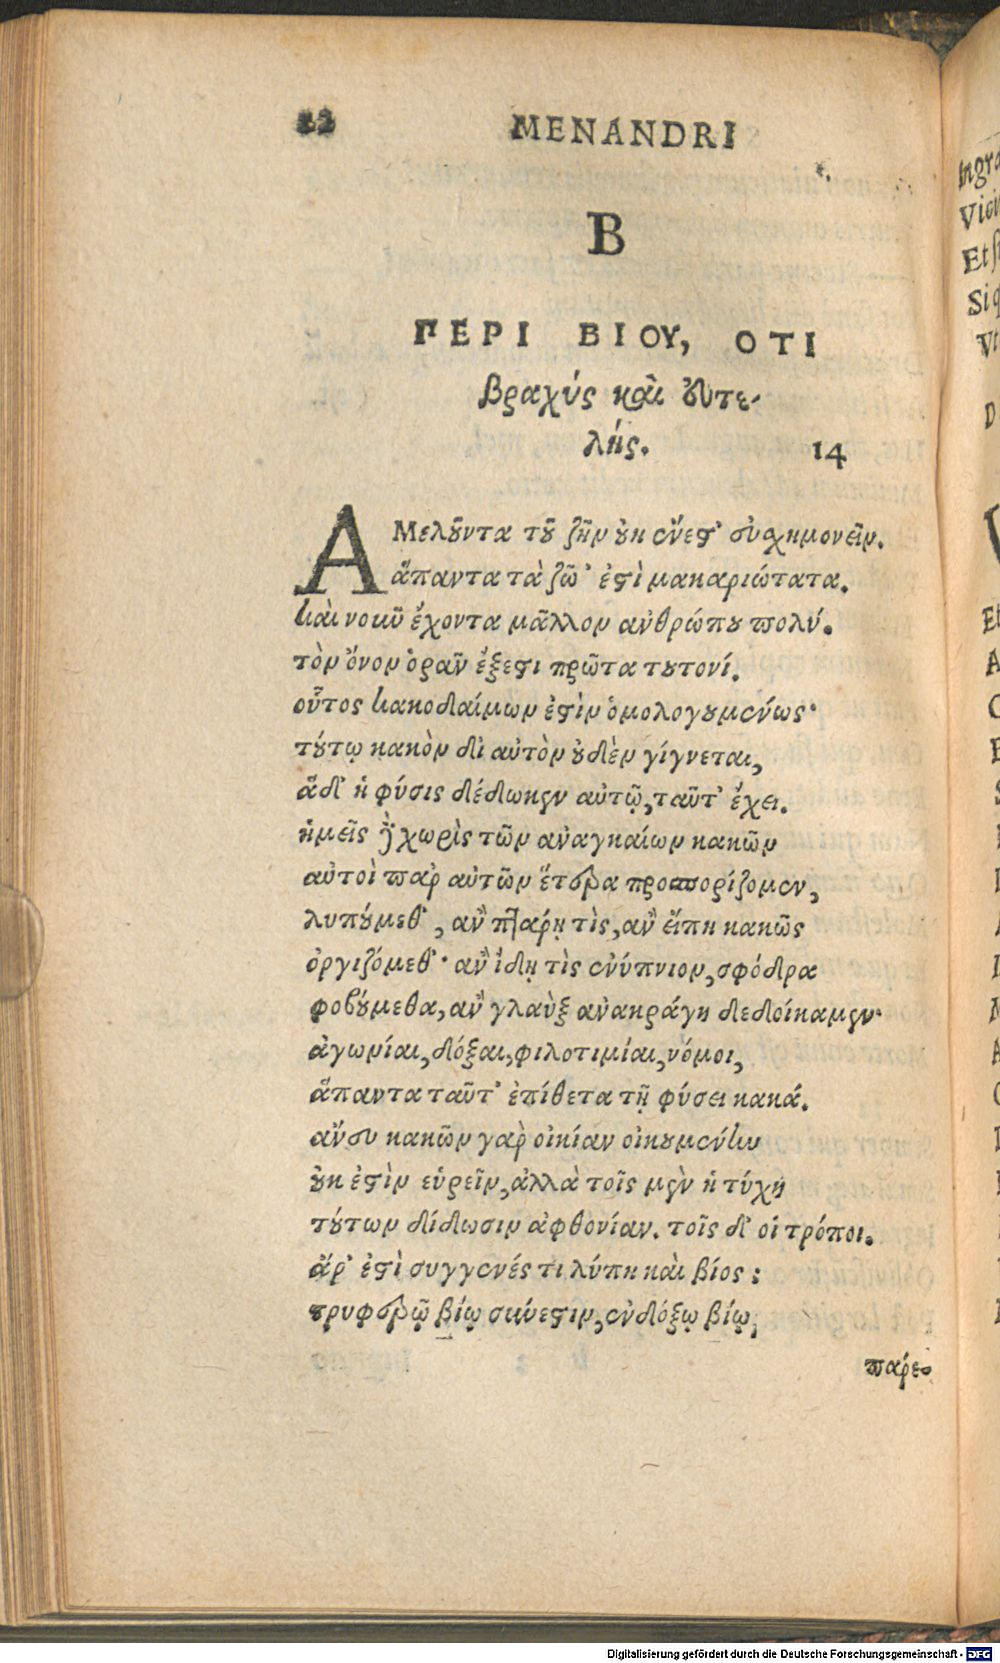 22 MENANDRI
B
ΠΕΡΙ ΒΙΟΥ, ΟΤΙ
βραχύς καὶ εὐτε-
λής. 14
ΑΜελοῦντα τοῦ ζῆν οὐκ ἔνεστ' εὐσχημονεῖν.
ἅπαντα τὰ ζῶ' ἐστὶ μακαριώτατα.
καὶ νοῦν ἔχοντα μᾶλλον ἀνθρώπου πολύ.
τὸν ὄνον ὁρᾶν ἔξεστι πρῶτα τουτονί.
οὗτος κακοδαίμων ἐστὶν ὁμολογουμένως·
τούτῳ κακὸν δι αὐτὸν οὐδὲν γίγνεται,
ἃ δ' ἡ φύσις δέδωκεν αὐτῷ, ταῦτ' ἔχει.
ἡμεῖς δὲ χωρὶς τῶν ἀναγκαίων κακῶν
αὐτοὶ παρ αὑτῶν ἕτερα προσπορίζομεν,
λυπούμεθ', ἂν πτάρῃ τὶς, ἂν εἴπη κακῶς
ὀργιζόμεθ'· ἂν ἴδῃ τὶς ἐνύπνιον, σφόδρα
φοβούμεθα, ἂν γλαὺξ ἀνακράγη δεδοίκαμεν·
ἀγωνίαι, δόξαι, φιλοτιμίαι, νόμοι,
ἅπαντα ταῦτ' ἐπίθετα τῇ φύσει κακά.
ἄνευ κακῶν γὰρ οἰκίαν οἰκουμένην
οὐκ ἐστὶν εὑρεῖν, ἀλλὰ τοῖς μὲν ἡ τύχη
τούτων δίδωσιν ἀφθονίαν. τοῖς δ' οἱ τρόποι.
ἆρ' ἐστὶ συγγενές τι λύπη καὶ βίος;
τρυφερῷ βίῳ σύνεστιν, ἐνδόξῳ βίῳ,
πάρε-
Ingra
Vici
Et si
Si q
Digitalisierung gefördert durch die Deutsche Forschungsgemeinschaft - DFG